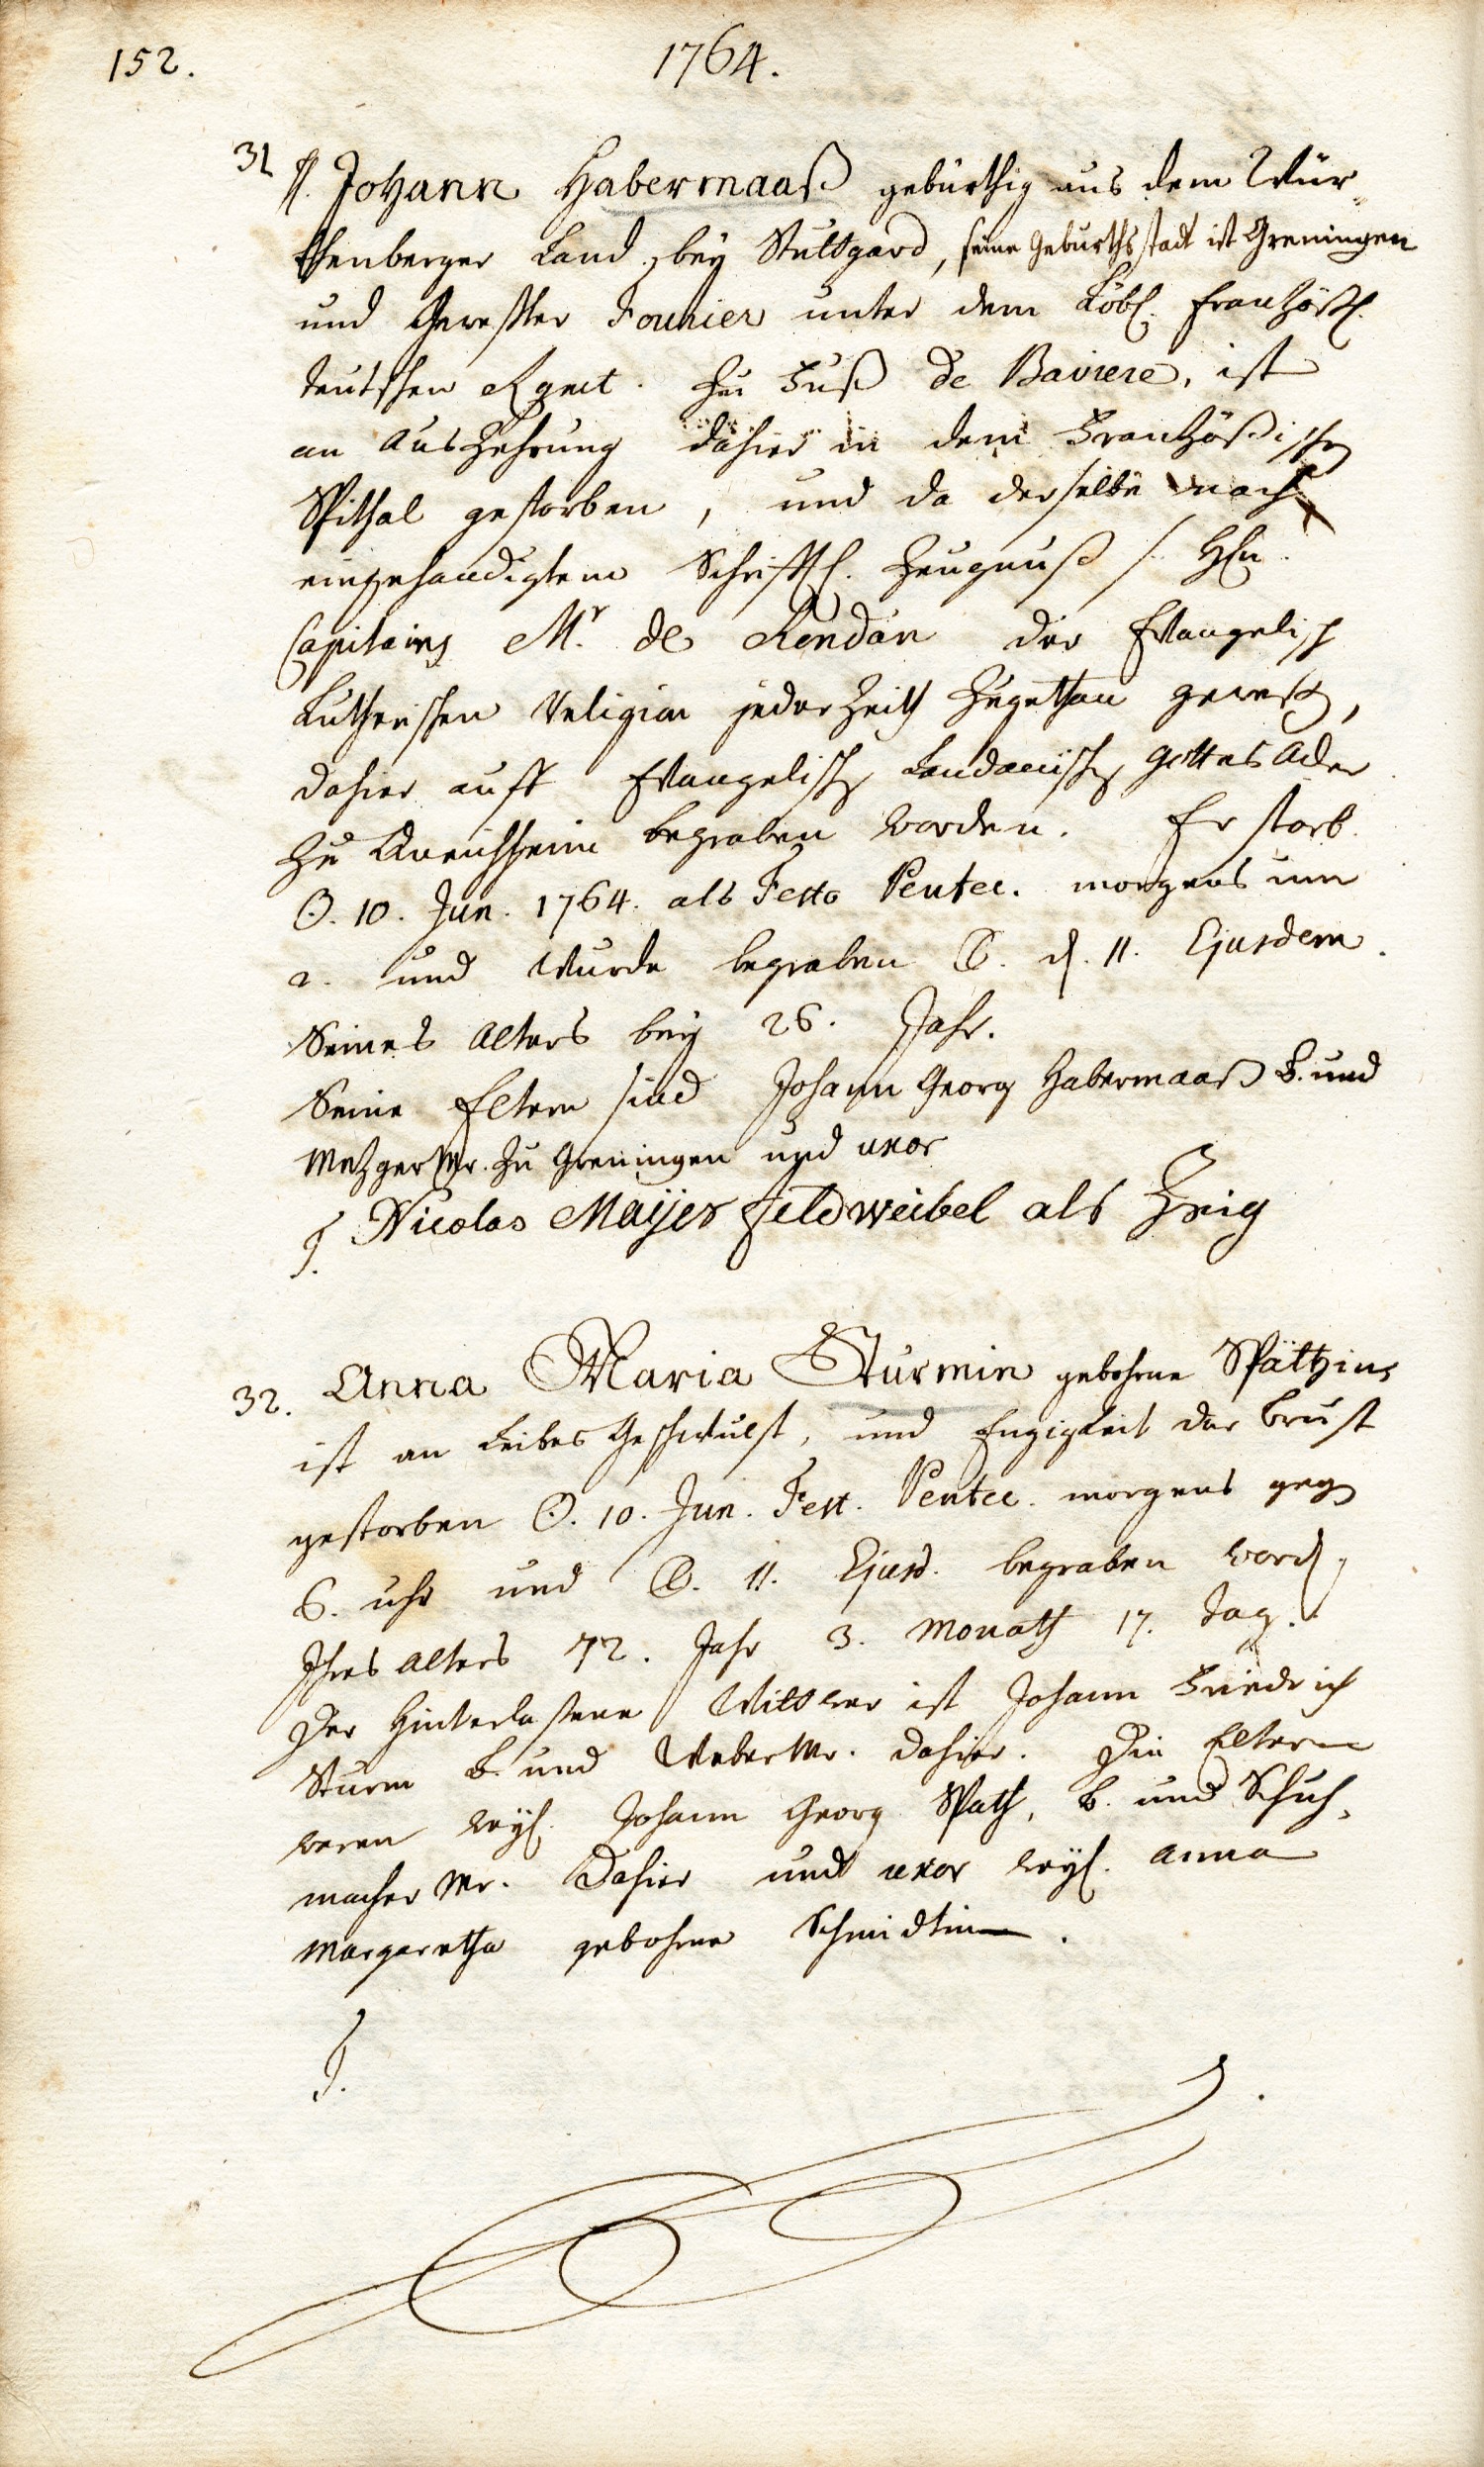 152.
1764.
31 Johann Habermaaß gebürthig aus dem Wür-
thenberger Land, bey Stuttgard, seine Geburthsstadt ist Greningen
und Geweßter Fourier unter dem Löbl. Französl.
teutschen Rgmt. zu Fuß de Baviere, ist
an Auszehrung dahier in dem Französischen
Spithal gestorben, und da derselbe nach
eingehändigtem Schrifftl. Zeugnuß s. Hln.
Capitains Mr. de Rendan der Evangelisch
Lutherischen Religion jederZeith zugethan geweßt,
dahier auff Evangelisch Landauisch Gottes Acker
zu Queichheim begraben worden. Er starb
☉. 10. Jun. 1764. als Festo Pentec. morgens um
2. und wurde begraben ☾. d. 11. Ejusdem.
Seines Alters bey 26. Jahr.
Seine Eltern sind Johann Georg Habermaaß B. und
Metzger Mr. zu Greningen und uxor
T. Nicolas Maijer feldweibel als Zeig
32. Anna Maria Sturmin gebohrne Späthin
ist an Leibes Geschwulst, und Engigkeit der Brust
gestorben ☉. 10. Jun. Fest. Pentec. morgens geg
6. uhr und ☾. 11. Ejusd. begraben word,
Ihres Alters 72. Jahr 3. Monath 17. Tag.
Der Hinterlaßene Wittwer ist Johann Friedrich
Sturm B. und Weber Mr. dahier. Die Eltern
waren weyl. Johann Georg Spath, B. und Schuh-
macher Mr. Dahier und uxor weyl. Anna
Margaretha gebohrne Schmidtin.
T.